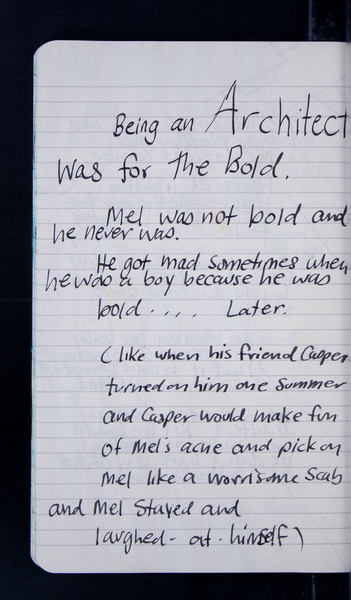 Being an Architect
Was for the Bold.
Mel was not bold and
he never was.
He got mad sometimes when
he was a boy because he was
bold..... Later.
(like when his friend Casper
turned on him one Summer
and Casper would make fun
of Mel's acne and pick on
Mel like a worrisome Scab
and Mel Stayed and
laughed - at - himself)